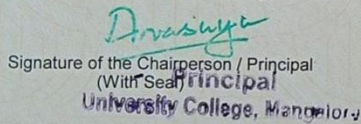 Signature of the Chairperson / Principal
(With Seal)
Principal
University College, Mangalore